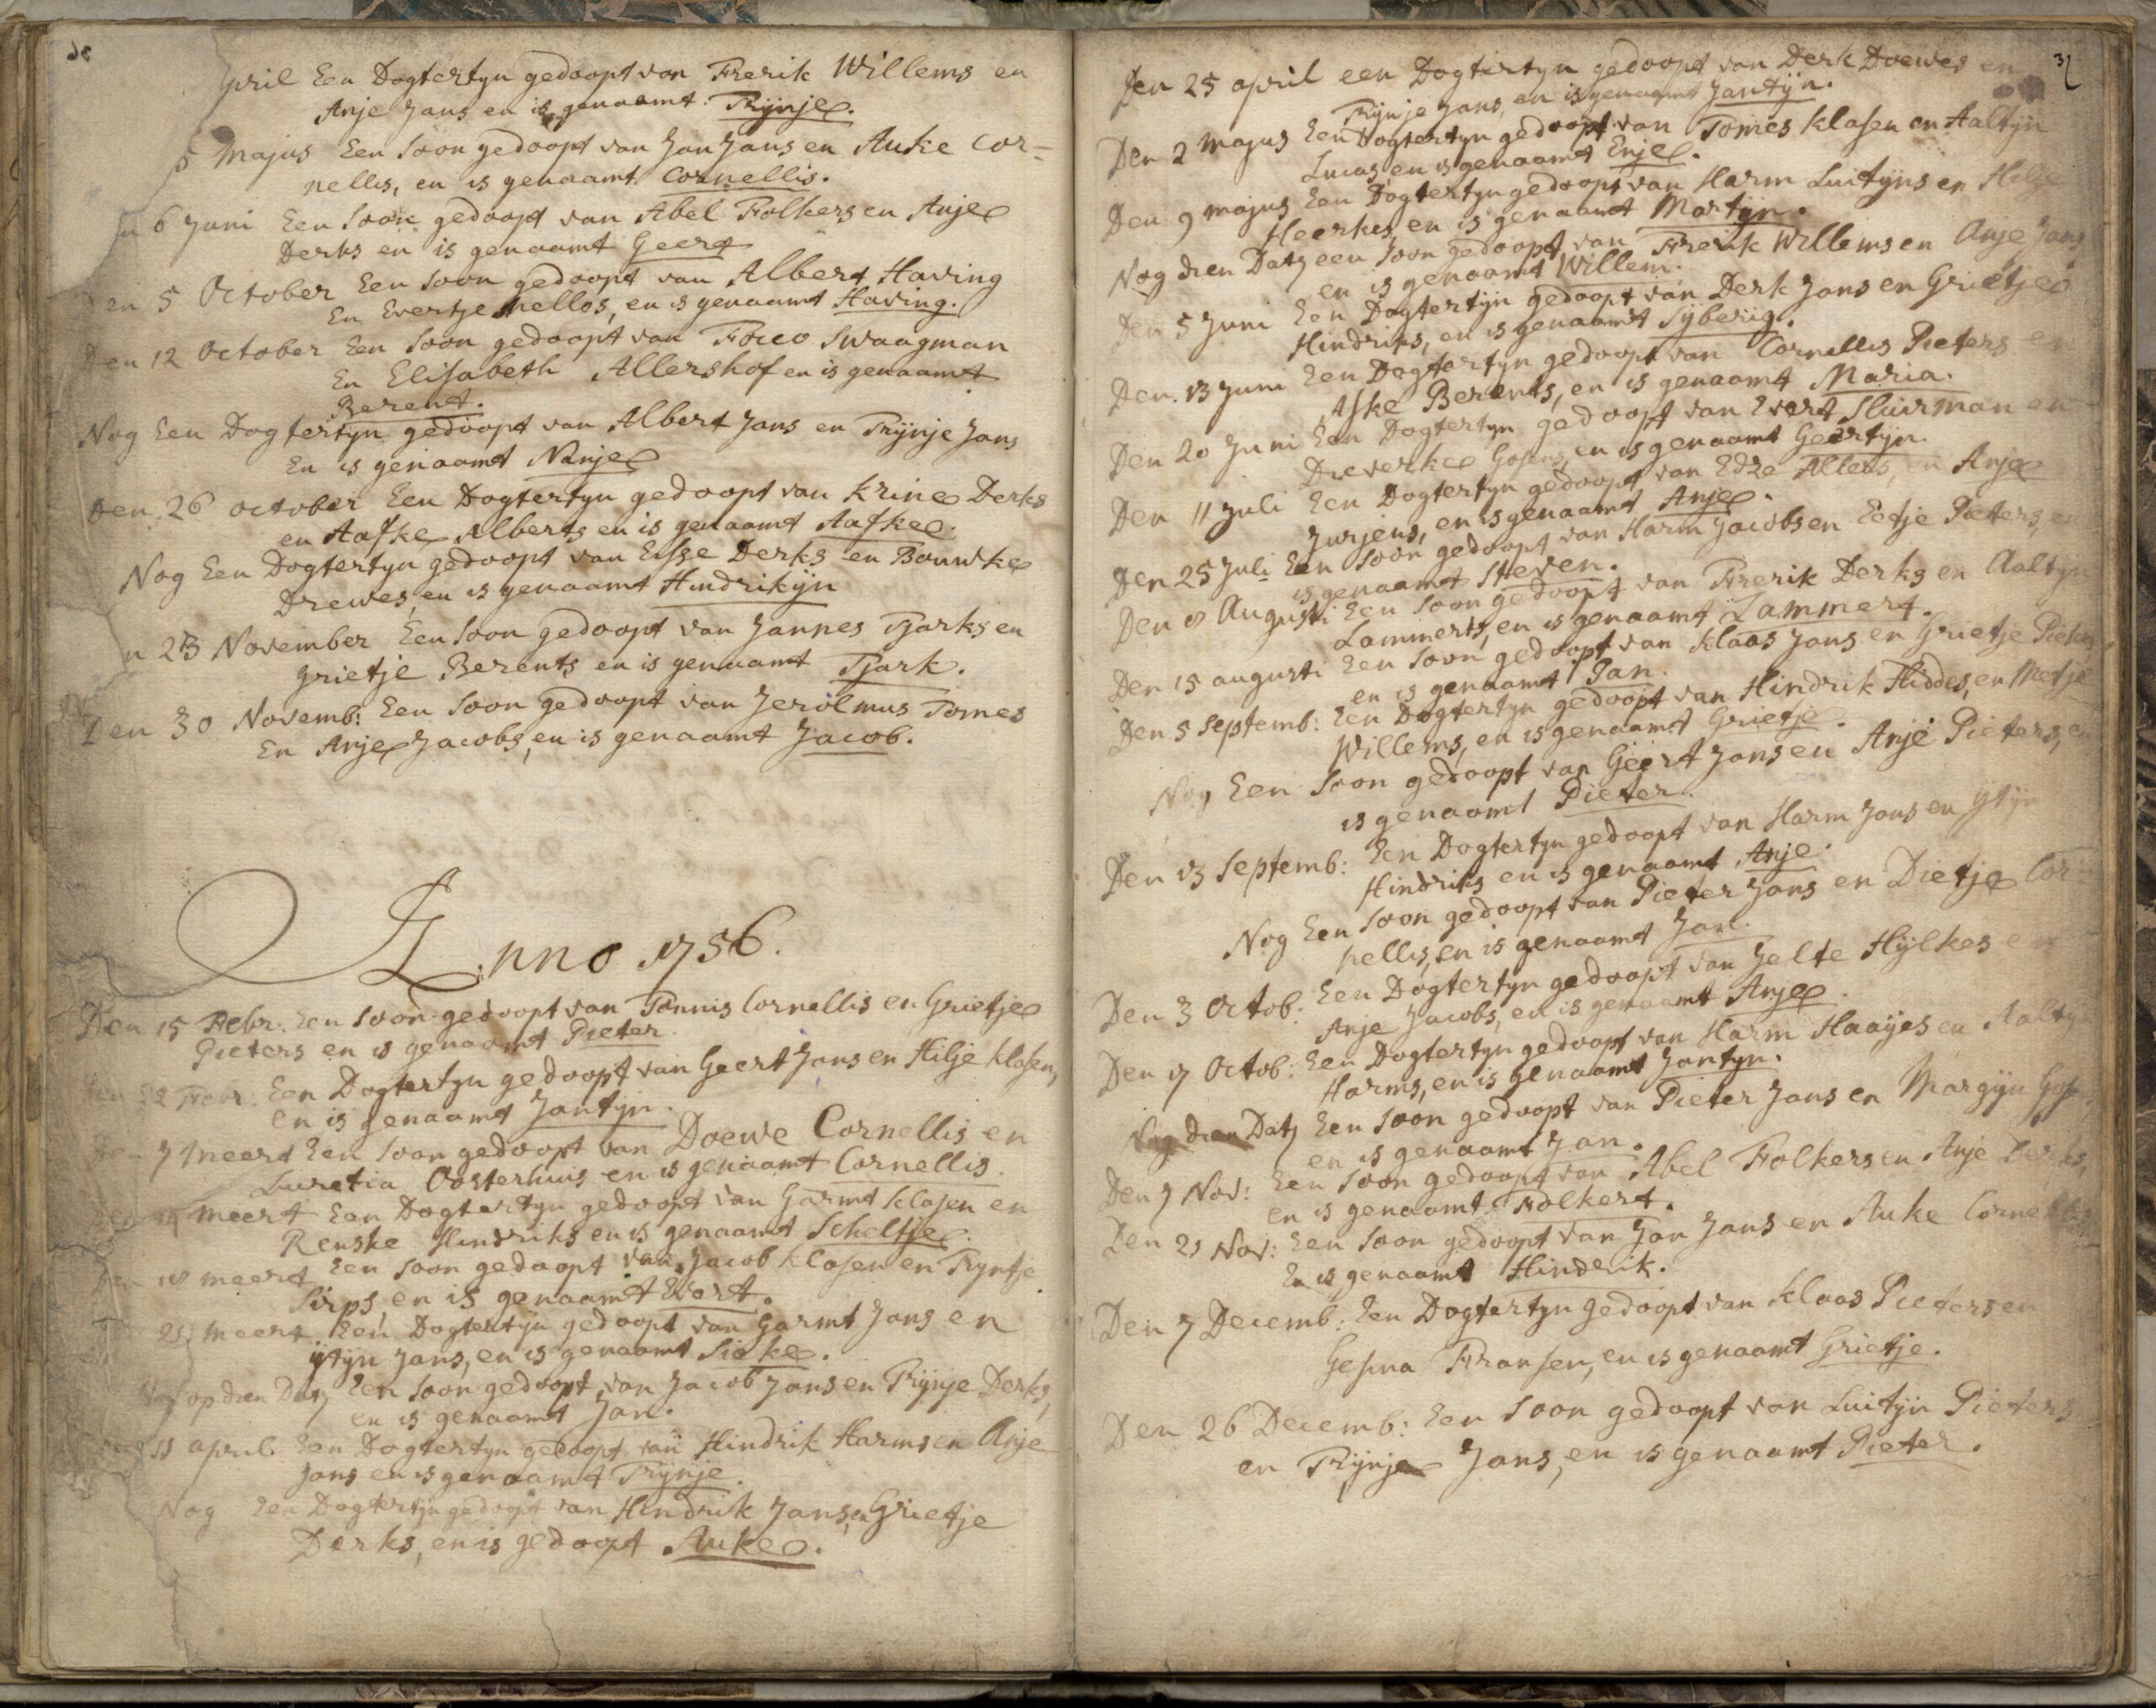 April Een Dogtertyn gedoopt van Frerik Willems en
Anje Jans en is genaamt: Trijnje.
Majus Een Soon gedoopt van Jan Jans en Auke Cor=
nellis, en is genaamt Cornellis.
6 Juni Een Soon gedoopt van Abel Folkers en Anje
Derks en is genaamt Geert
Den 5 October Een Soon gedoopt van Albert Having
En Evertje Mellos, en is genaamt Having.
Den 12 October Een Soon gedoopt van Focco Swaagman
En Elisabeth Allershof en is genaamt
Berent.
Nog Een Dogtertyn gedoopt van Albert Jans en Trijnje Jans
En is genaamt Nanje
Den 26 october Een Dogtertyn gedoopt van Krine Derks
en Aafke Alberts en is genaamt Aafke.
Nog Een Dogtertyn gedoopt van Eisse Derks en Bouwke
Drewes en is genaamt Hindrikijn
23 November Een Soon gedoopt van Jannes Tjarks en
Grietje Berents en is genaamt Tjark.
Den 30 Novemb: Een Soon gedoopt van Jerolmus Tomes
En Anje Jacobs, en is genaamt Jacob.
Anno 1756.
Den 15 Febr: Een Soon gedoopt van Tonnis Cornellis en Grietje
Pieters en is genaamt Pieter
22 Febr: Een Dogtertyn gedoopt van Geert Jans en Hilje Klasen,
en is genaamt Jantijn.
Den 7 Meert Een Soon gedoopt van Doewe Cornellis en
Lucretia Oosterhuis en is genaamt Cornellis.
Den 14 Meert Een Dogtertyn gedoopt van Garmt Klasen en
Renske Hindriks en is genaamt Scheltje.
18 meert Een Soon gedoopt van Jacob Klasen en Tryntje
Sirps, en is genaamt Evert.
21 Meert Een Dogtertyn gedoopt van Garmt Jans en
ijtijn Jans, en is genaamt Sieke.
Nog op dien Dato Een Soon gedoopt van Jacob Jans en Trijnje Derks,
en is genaamt Jan.
11 april Een Dogtertyn gedoopt van Hindrik Harms en Anje
Jans en is genaamt Trijnje.
Nog Een Dogtertyn gedoopt van Hindrik Jans, en Grietje
Derks, en is gedoopt Auke.
31
Den 25 april een Dogtertyn gedoopt van Derk Doewes en
Trijnje Jans, en is genaamt Jantijn.
Den 2 Majus Een Dogtertyn gedoopt van Tomes Klasen en Aaltijn
Lucas, en is genaamt Enje.
Den 9 majus Een Dogtertyn gedoopt van Harm Luitijns en
Heerkes, en is genaamt Martijn.
Nog dien Dato een Soon gedoopt van Frerik Willems en Anje Jans
en is genaamt Willem.
Den 5 Juni Een Dogtertijn gedoopt van Derk Jans en Grietje
Hindriks, en is genaamt Sijberig.
Den 13 Juni Een Dogtertyn gedoopt van Cornellis Pieters en
Afke Berents, en is genaamt Maria.
Den 20 Juni Een Dogtertyn gedoopt van Evert Stuirman en
Dreverke Gosens, en is genaamt Geertijn.
Den 11 Juli Een Dogtertyn gedoopt van Edze Allers, en Anje
Jurjens, en is genaamt Anje.
Den 25 Juli Een Soon gedoopt van Harm Jacobs en Eetje Pieters, en
is genaamt Steven.
Den 8 Augusti Een Soon gedoopt van Frerik Derks en Aaltyn
Lammerts, en is genaamt Lammert.
Den 15 augusti Een Soon gedoopt van Klaas Jans en Grietje Pieters,
en is genaamt Jan.
Den 5 Septemb: Een Dogtertyn gedoopt van Hindrik Hiddes, en Metje
Willems, en is genaamt Grietje.
Nog Een Soon gedoopt van Geert Jans en Anje Pieters, en
is genaamt Pieter.
Den 13 Septemb: Een Dogtertyn gedoopt van Harm Jans en ytijn
Hindriks en is genaamt Anje.
Nog Een Soon gedoopt van Pieter Jans en Dietje Cor=
nellis, en is genaamt Jan.
Den 3 Octob: Een Dogtertyn gedoopt van Jelte Hijlkes en
Anje Jacobs, en is genaamt Anje.
Den 17 Octob: Een Dogtertyn gedoopt van Harm Haayes en Aaltijn
Harms, en is genaamt Jantyn.
Nog dien Dato Een Soon gedoopt van Pieter Jans en Margijn
en is genaamt Jan.
Den 7 Nov: Een Soon gedoopt van Abel Folkers en Anje Derks,
en is genaamt Folkert.
Den 21 Nov: Een Soon gedoopt van Jan Jans en Auke Cornellis
En is genaamt Hinderik.
Den 7 Decemb: Een Dogtertyn gedoopt van Klaas Pieters en
Gesina Fransen, en is genaamt Grietje.
Den 26 Decemb: Een Soon gedoopt van Luitijn Pieters
en Trijnje Jans, en is genaamt Pieter.